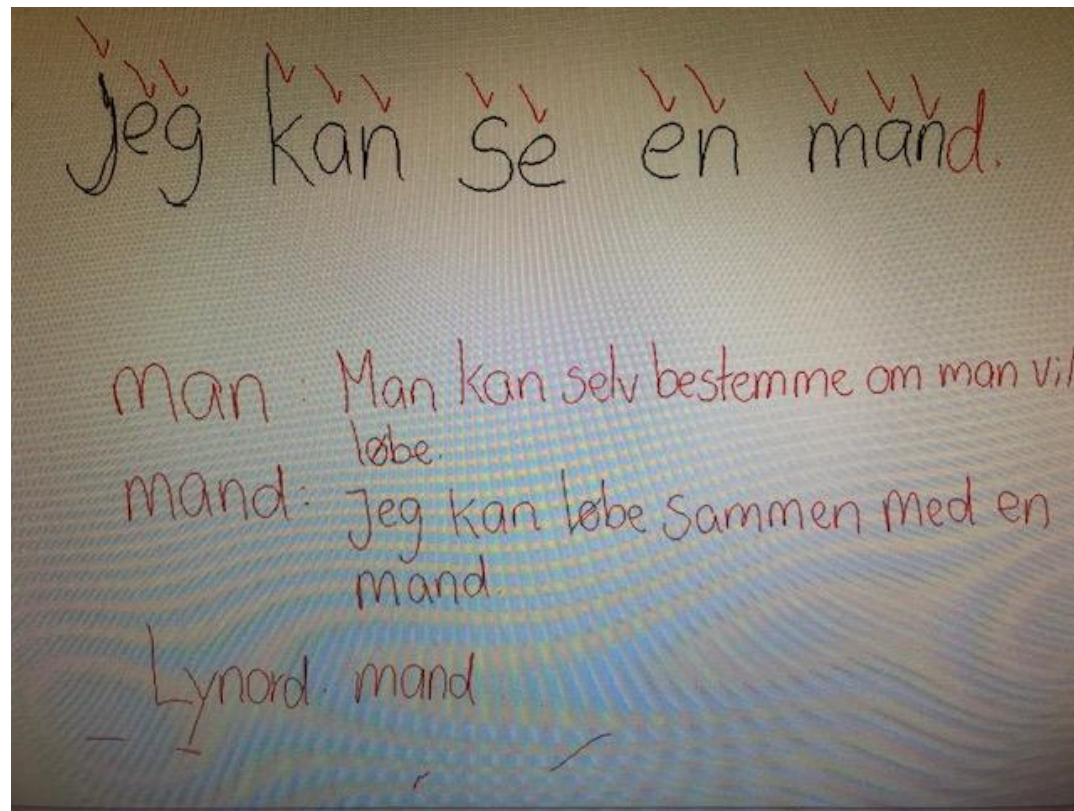 jeg kan se en mand.
man: Man kan selv bestemme om man vil
løbe.
mand: Jeg kan løbe sammen med en
mand.
Lynord. mand